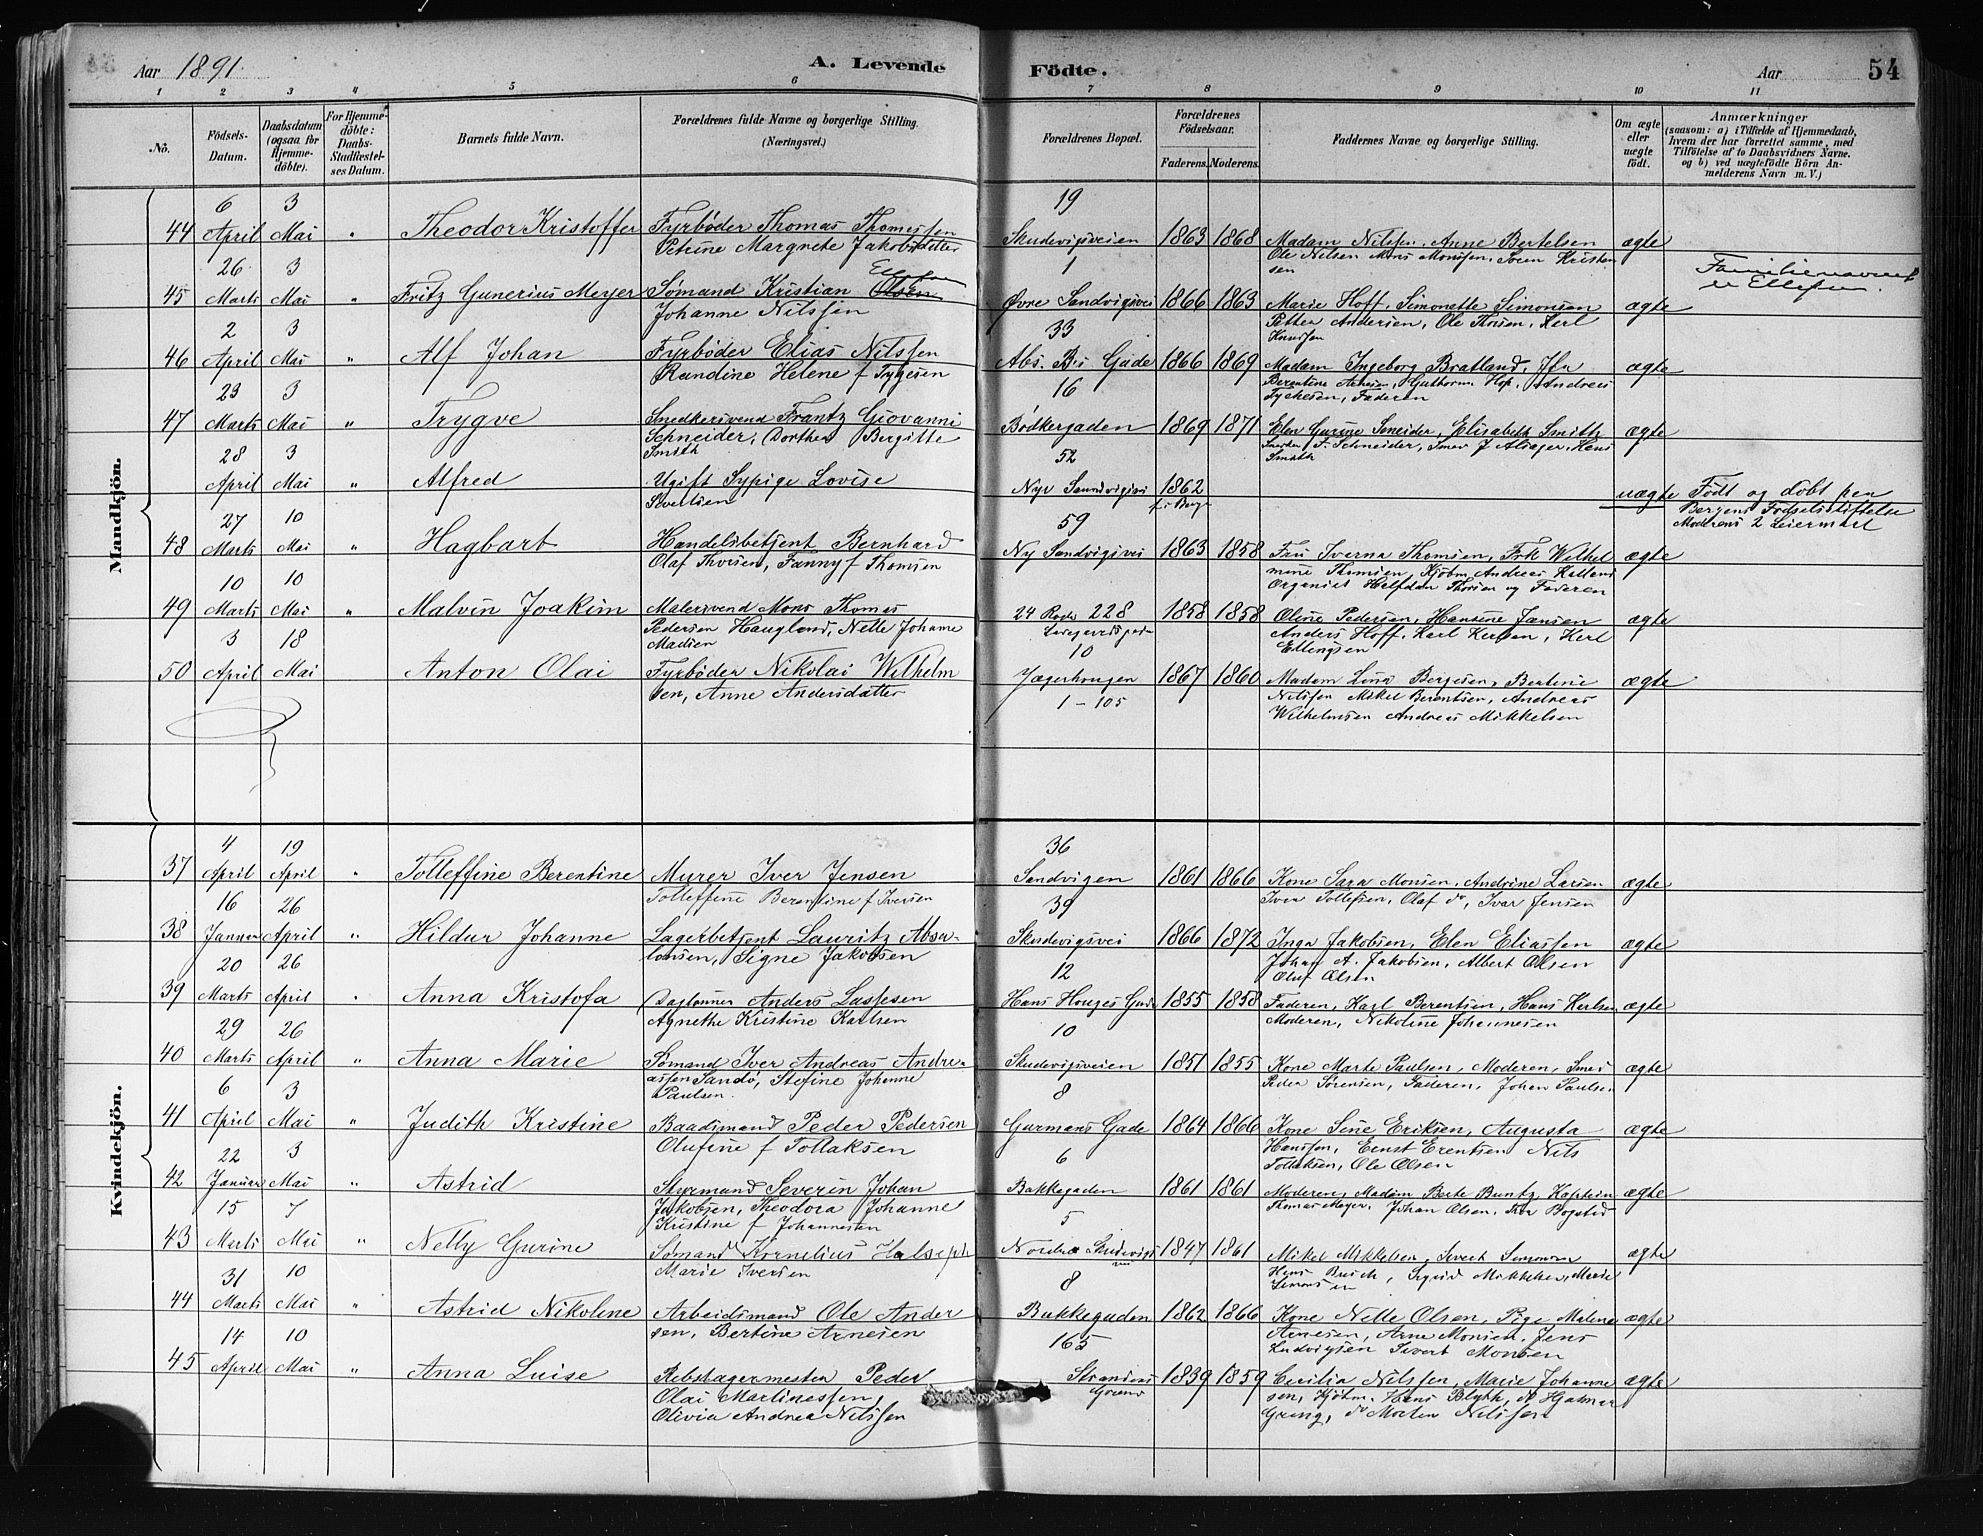 Aar 1891.
A. Levende Födte.
Aar 54
1 2 3 4 5 6 7 8 9 10 11
No.
Födsels-Datum.
Daabsdatum (ogsaa for Hjemme-döbte).
For Hjemme-döbte: Daabs-Stadfæstel-ses Datum.
Barnets fulde Navn.
Forældrenes fulde Navne og borgerlige Stilling. (Næringsvei.)
Forældrenes Bopæl.
Forældrenes Födselsaar.
Faderens. Moderens.
Faddernes Navne og borgerlige Stilling.
Om ægte eller uægte födt.
Anmærkninger
(saasom: a) i Tilfælde af Hjemmedaab, hvem der har forrettet samme, med Tilföielse af to Daabsvidners Navne, og b) ved uægtefödte Börn An-melderens Navn m. V.)
Mandkjön.
6 3 19
44 April Mai " Theodor Kristoffer Fyrbøder Thomas Thomessen Skudevigsveien 1863 1868 Madam Nilssen, Anne Bertelsen ægte
Petrine Margrete Jakobsdatter Ole Nilsen Mons Monssen, Sven Kristensen
26 3 1
45 Marts Mai " Fritz Gunerius Meyer Sømand Kristian Olsen Ellefsen Øvre Sandvigsvei 1866 1863 Marie Hoff, Simonette Simonsen ægte Familienavnet er Ellefsen.
Johanne Nilssen Petter Andersen, Ole Thosen, Karl Knudsen
2 3 33
46 April Mai " Alf Johan Fyrbøder Elias Nilssen Abs. Bei Gade 1866 1869 Madam Ingeborg Bratland, Jfr ægte
Randine Helene f Tygesen Berentine Arnesen, Guthorm Hop, Andreas Tychesen, Faderen
23 3 16
47 Marts Mai " Trygve Snedkersvend Frantz Giovanni Bødkergaden 1869 1871 Elen Gurine Sneider, Elisabeth Smith ægte
Schneider, Dorthea Bergitte Smith Snedker F. Schneider, Smed J Alsager, Hans Smith
28 3 52
April Mai " Alfred Ugift Sypige Lovise Nye Sandvigsvei 1862 uægte Født og døbt paa
Sivertsen f. i Berg. Bergens Fødselsstiftelse Moderens 2 Leiermaal
27 10 59
48 Marts Mai " Hagbart Handelsbetjent Bernhard Ny Sandvigsvei 1863 1858 Fru Iverna Thomsen, Frk Wilhel ægte
Olaf Thorsen, Fanny f Thomsen mine Thomsen, Kjøbm. Andreas Organist Halfdan Thorsen og Faderen
10 10
49 Marts Mai " Malvin Joakim Malersvend Mons Thomas 24 Rode 228 1858 1858 Oline Pedersen, Hansine Jansen ægte
Pedersen Haugland, Nelle Johanne Madsen Anders Hoff, Karl Karlsen, Karl Ellingsen
3 18 10
50 April Mai Anton Olai Fyrbøder Nikolai Wilhelm Jægerhougen 1867 1860 Madam Lina Bergesen, Bertine ægte
sen, Anne Andersdatter 1-105 Nilssen Mikel Berentsen, Andreas
Wilhelmsen Andreas Mikkelsen
Kvindekjön.
4 19 36
37 April April " Tolleffine Berentine Murer Iver Jensen Sandvigen 1861 1866 Kone Sara Monsen, Andrine Larsen ægte
Tolleffine Berentine f Iversen Iver Tollefsen, Olaf do, Ivar Jensen
16 26 39
38 Januar April " Hildur Johanne Lagerbetjent Lauritz Absa- Skudevigsvei 1866 1872 Inga Jakobsen, Elen Eliassen ægte
lonsen, Signe Jakobsen Johan A. Jakobsen, Albert Olsen Oluf Olsen
20 26 12
39 Marts April " Anna Kristofa Daglønner Anders Lassesen Hans Houges Gade 1855 1858 Faderen, Karl Berentsen, Hans Karlsen ægte
Agnethe Kristine Karlsen Moderen, Nikoline Johannesen
29 26 10
40 Marts April " Anna Marie Sømand Iver Andreas Andre- Skudevigsveien 1851 1855 Kone Marte Paulsen, Moderen, Smed ægte
assen Sandø, Stefine Johanne Paulsen. Peder Sørensen, Faderen, Johan Paulsen
6 3 8
41 April Mai " Judith Kristine Baadsmand Peder Pedersen Garmans Gade 1864 1866 Kone Sine Eriksen, Augusta ægte
Olufine f Tollaksen Hanssen, Ernst Erentsen Nils Tollaksen, Ole Olsen
22 3 6
42 Januar Mai " Astrid Styrmand Severin Johan Bakkegaden 1861 1861 Moderen, Madam Berte Buntz, Kaptein ægte
Jakobsen, Theodora Johanne Kristine f Johannesen Thomas Meyer, Johan Olsen, Iver Bogstad
15 7 5
43 Marts Mai " Nelly Gurine Sømand Kornelius Nordre Skudevigsvei 1847 1861 Mikel Mikkelsen, Sivert Simonsen ægte
Marie Iversen Hans Busch, Sigrid Mikkelsen, Marie Simonsen
31 10 8
44 Marts Mai " Astrid Nikoline Arbeidsmand Ole Ander Bakkegaden 1862 1866 Kone Nelle Olsen, Pige Malene ægte
sen, Bertine Arnesen Arnesen, Arne Monsen, Jens Ludvigsen Sivert Monsen
14 10 165
45 April Mai " Anna Luise Rebslagermester Peder Strandens Grund 1839 1859 Cecilia Nilssen, Marie Johanne ægte
Olai Martinessen, sen, Kjøbm. Hans Blytt, do Hjalmar
Olivia Andrea Nilssen Grung, do Morten Nilssen